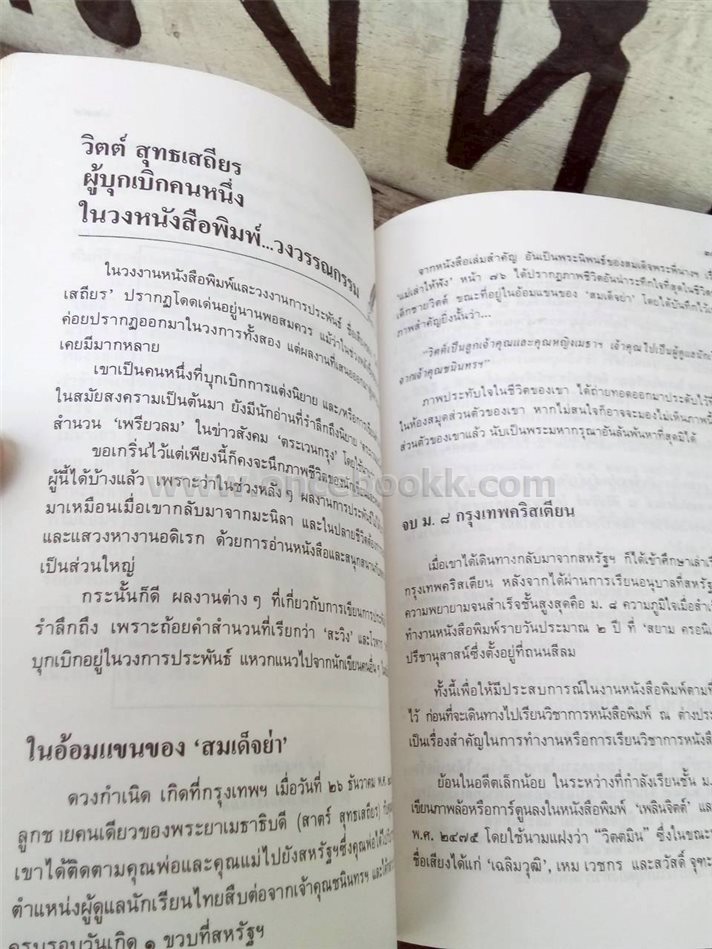 วิตต์ สุทธเสถียร
ผู้บุกเบิกคนหนึ่ง
ในวงหนังสือพิมพ์...วงวรรณกรรม
ในวงงานหนังสือพิมพ์และวงงานการประพันธ์ ชื่อ
เสถียร’ ปรากฏโดดเด่นอยู่นานพอสมควร แม้ว่าในช่วงหลัง
ค่อยปรากฏออกมาในวงการทั้งสอง แต่ผลงานที่เสนอออกมา
เคยมีมากหลาย
เขาเป็นคนหนึ่งที่บุกเบิกการแต่งนิยาย และ/หรือการเขียน
ในสมัยสงครามเป็นต้นมา ยังมีนักอ่านที่รำลึกถึงนิยาย
สำนวน ‘เพรียวลม’ ในข่าวสังคม ‘ตระเวนกรุง’ โดยใช้นาม
ขอเกริ่นไว้แต่เพียงนี้ก็คงจะนึกภาพชีวิตของนัก
ผู้นี้ได้บ้างแล้ว เพราะว่าในช่วงหลังๆ ผลงานการประพันธ์
มาเหมือนเมื่อเขากลับมาจากมะนิลา และในปลายชีวิตต้อง
และแสวงหางานอดิเรก ด้วยการอ่านหนังสือและสนุกสนาน
เป็นส่วนใหญ่
กระนั้นก็ดี ผลงานต่างๆ ที่เกี่ยวกับการเขียนการประพันธ์
รำลึกถึง เพราะถ้อยคำสำนวนที่เรียกว่า ‘สะวิง’ และโวหาร
บุกเบิกอยู่ในวงการประพันธ์ แหวกแนวไปจากนักเขียนคนอื่นๆ
ในอ้อมแขนของ ‘สมเด็จย่า’
ดวงกำเนิด เกิดที่กรุงเทพฯ เมื่อวันที่ ๒๖ ธันวาคม พ.ศ.
ลูกชายคนเดียวของพระยาเมธาธิบดี (สาตร์ สุทธเสถียร)
เขาได้ติดตามคุณพ่อและคุณแม่ไปยังสหรัฐฯซึ่งคุณพ่อได้
ตำแหน่งผู้ดูแลนักเรียนไทยสืบต่อจากเจ้าคุณชนินทรฯ และได้
ครบรอบวันเกิด ๑ ขวบที่สหรัฐฯ
จากหนังสือเล่มสำคัญ อันเป็นพระนิพนธ์ของสมเด็จพระพี่นางฯ
‘แม่เล่าให้ฟัง’ หน้า ๗๖ ได้ปรากฏภาพชีวิตอันน่าระทึกใจที่สุดในชีวิต
เด็กชายวิตต์ ขณะที่อยู่ในอ้อมแขนของ ‘สมเด็จย่า’ โดยได้บันทึกไว้
ภาพสำคัญยิ่งนั้นว่า...
“วิตต์เป็นลูกเจ้าคุณและคุณหญิงเมธาฯ เจ้าคุณไปเป็นผู้ดูแลนัก
จากเจ้าคุณชนินทรฯ”
ภาพประทับใจในชีวิตของเขา ได้ถ่ายทอดออกมาประดับไว้
ในห้องสมุดส่วนตัวของเขา หากไม่สนใจก็อาจจะมองไม่เห็นภาพนี้
ส่วนตัวของเขาแล้ว นับเป็นพระมหากรุณาอันล้นพ้นหาที่สุดมิได้
www.oncebookk.com
จบ ม. ๘ กรุงเทพคริสเตียน
เมื่อเขาได้เดินทางกลับมาจากสหรัฐฯ ก็ได้เข้าศึกษาเล่าเรียน
กรุงเทพคริสเตียน หลังจากได้ผ่านการเรียนอนุบาลที่สหรัฐ
ความพยายามจนสำเร็จชั้นสูงสุดคือ ม. ๘ ความภูมิใจเมื่อ
ทำงานหนังสือพิมพ์รายวันประมาณ ๒ ปี ที่ ‘สยาม ครอนิ
ปรีชานุสาสน์ซึ่งตั้งอยู่ที่ถนนสีลม
ทั้งนี้เพื่อให้มีประสบการณ์ในงานหนังสือพิมพ์ตามที่
ไว้ ก่อนที่จะเดินทางไปเรียนวิชาการหนังสือพิมพ์ ณ ต่างประ
เป็นเรื่องสำคัญในการทำงานหรือการเรียนวิชาการหนังสือ
ย้อนในอดีตเล็กน้อย ในระหว่างที่กำลังเรียนชั้น ม.
เขียนภาพล้อหรือการ์ตูนลงในหนังสือพิมพ์ ‘เพลินจิตต์’ และ
พ.ศ. ๒๔๗๕ โดยใช้นามแฝงว่า “วิตตมิน” ซึ่งในขณะ
ชื่อเสียงได้แก่ ‘เฉลิมวุฒิ’, เหม เวชกร และสวัสดิ์ จุฑะ